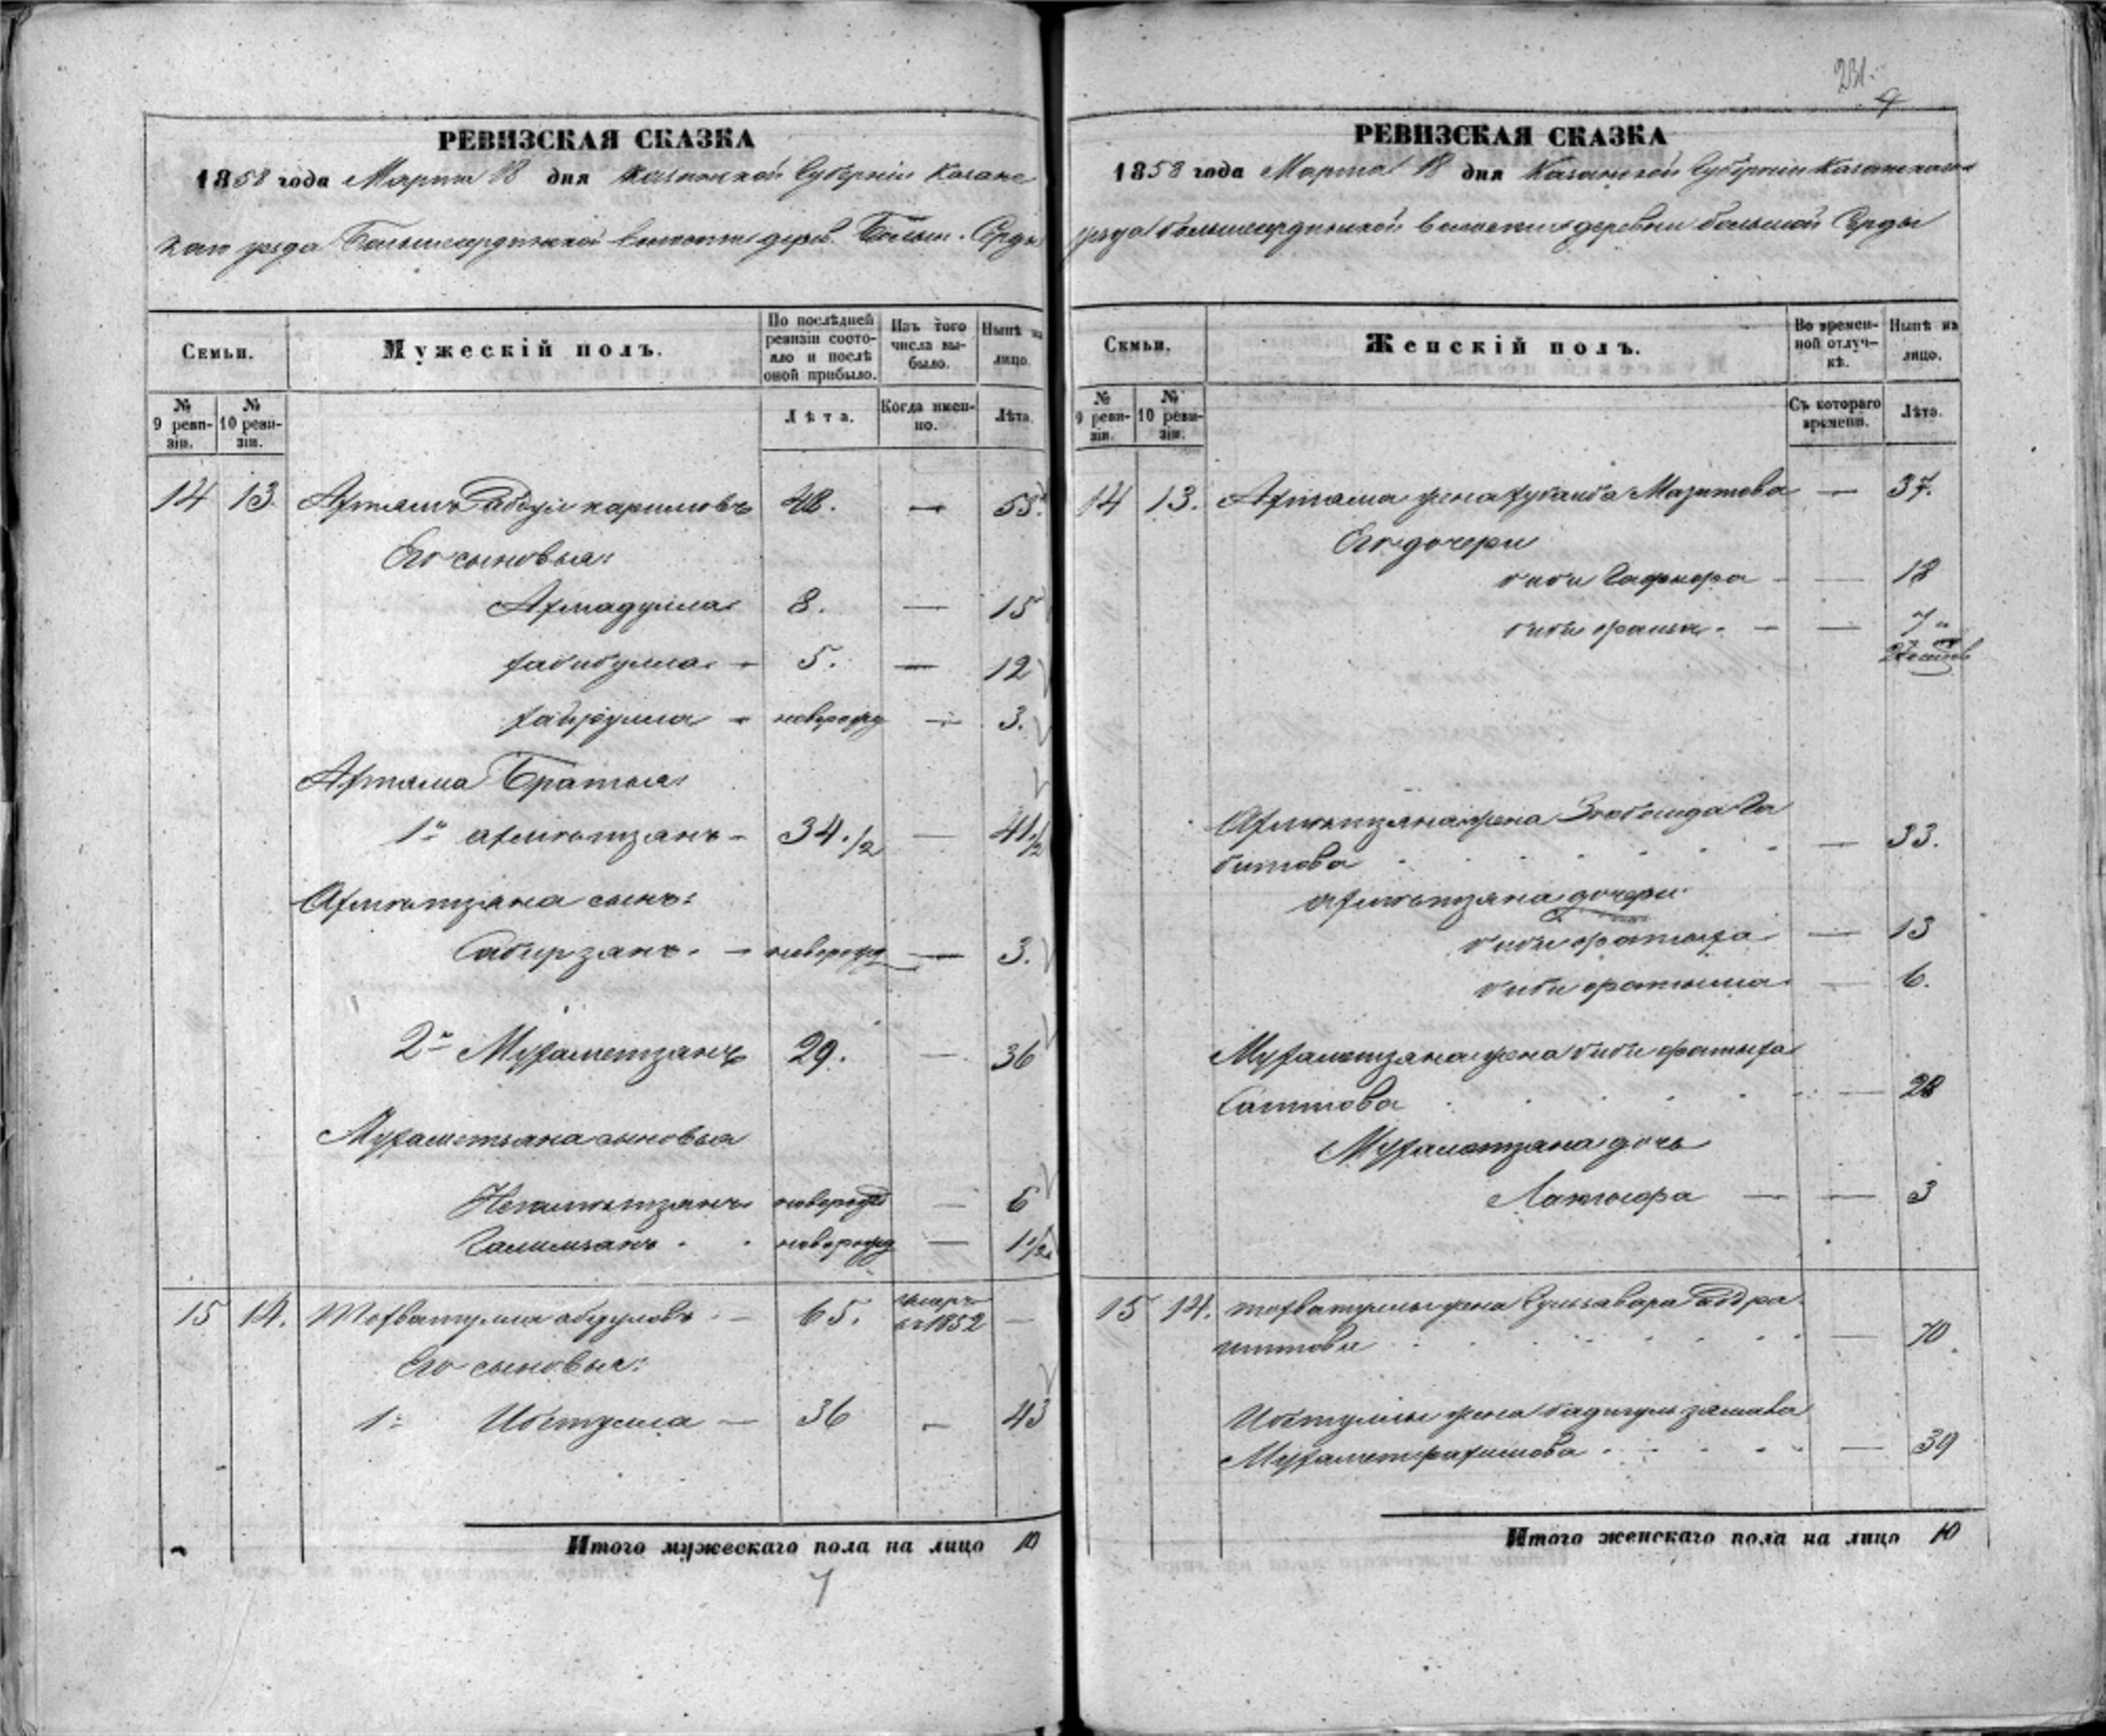 231.
9
РЕВИЗСКАЯ СКАЗКА
1858 года Марта 18 дня Казанской Губерніи Казанс
каго уезда Большесердинской волости дерев. Больш. Серды
Семьи.
Мужескій полъ.
По послѣдней ревизіи состояло и послѣ оной прибыло.
Изъ того числа выбыло.
Нынѣ на лицо.
№ 9 ревизіи.
№ 10 ревизіи.
Лѣта.
Когда именно.
Лѣта.
14 13. Ахтямъ Абдулкаримовъ 48. — 55.
Его сыновья:
Ахмадулла 8. — 15
Хабибулла — 5. — 12
Хайрулла — новорожд — 3.
Ахтяма Братья:
1й Ахметзянъ — 34 1/2 — 41 1/2
Ахметзяна сынъ:
Сабирзянъ. — новорожд — 3.
2й Мухаметзянъ 29. — 36
Мухаметзяна сыновья
новорожд — 6
Галимзянъ новорожд — 1 1/2
15 14. Тохватулла Абдуловъ — 65. умеръ въ 1852 —
Его сыновья:
1й — 36 — 43
Итого мужескаго пола на лицо 10
7
РЕВИЗСКАЯ СКАЗКА
1858 года Марта 18 дня Казанской Губерніи Казанскаго
уезда Большесердинской волости деревни большой Серды
Семьи.
Женскій полъ.
Во временной отлучкѣ.
Нынѣ на лицо.
№ 9 ревизіи.
№ 10 ревизіи.
Съ котораго времени.
Лѣта.
14 13. Ахтяма жена Мазитова — 37.
Его дочери
биби — 18
биби — — 7
Ахметзяна жена Зюбейда Га
битова — 33.
Ахметзяна дочери
биби фатыха — 13
биби фатыма — 6.
Мухаметзяна жена биби фатыха
Саттова — 28
Мухаметзяна дочь
— — 3
15 14. Тохватуллы жена
— 70.
жена
Мухаметрахимова — 39
Итого женскаго пола на лицо 10